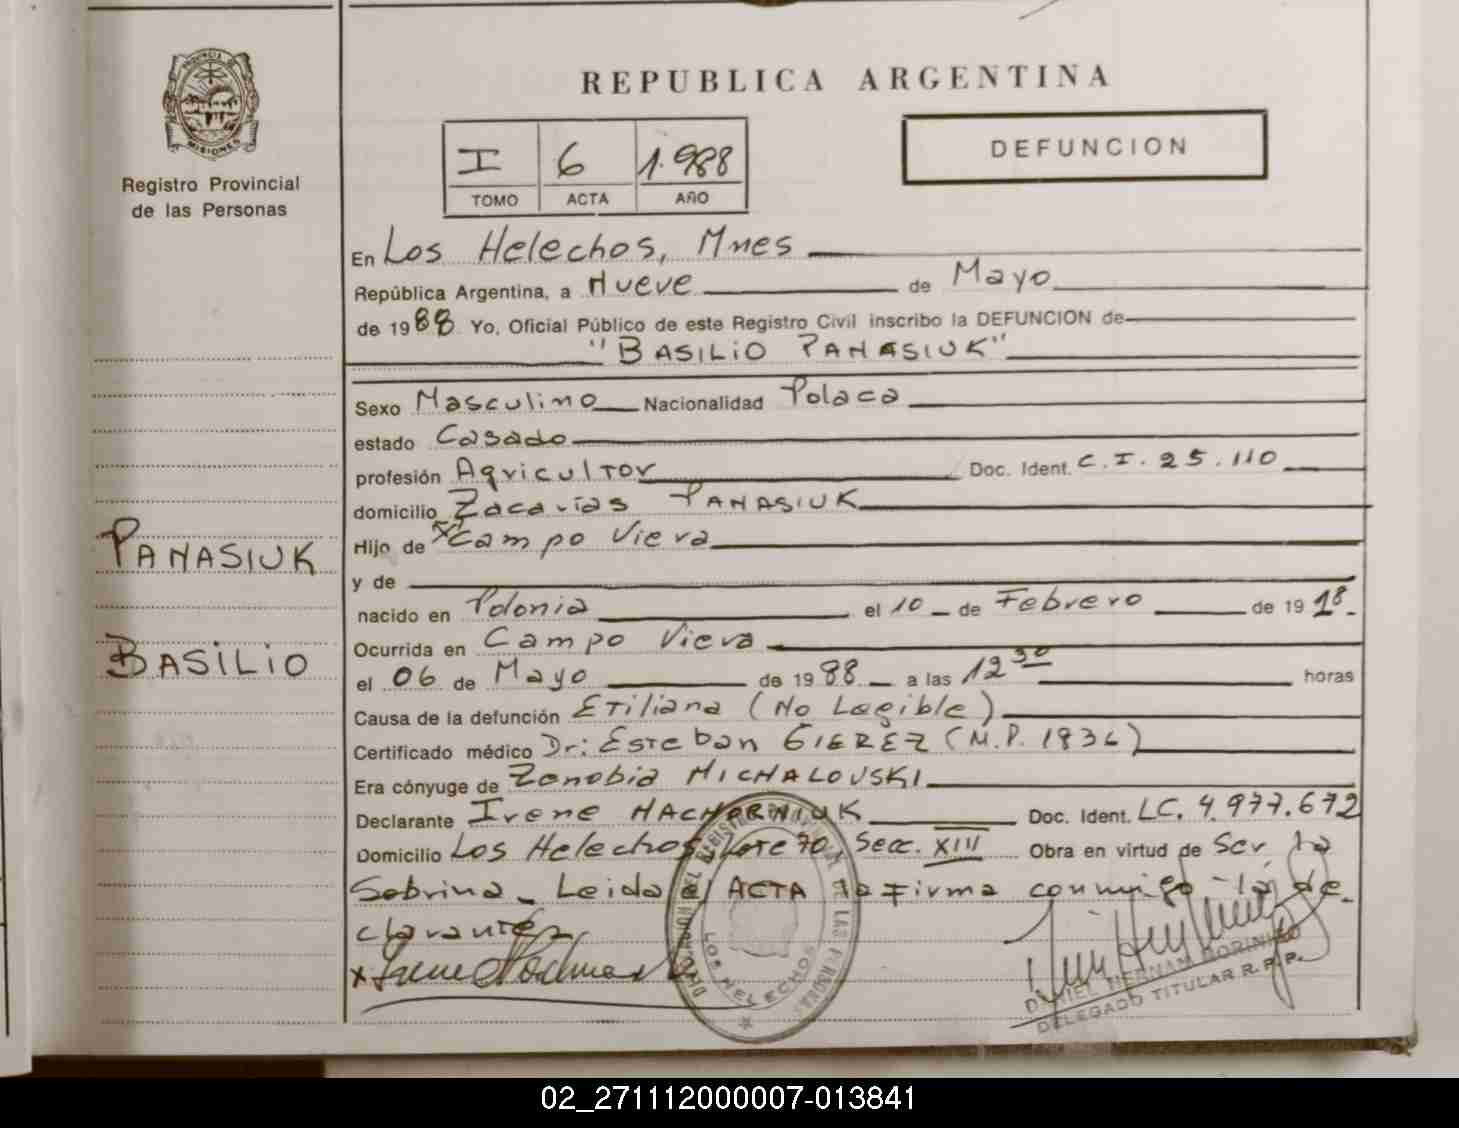 PROVINCIA DE
MISIONES
Registro Provincial
de las Personas
PANASIUK
BASILIO
REPUBLICA ARGENTINA
I 6 1.988
TOMO ACTA AÑO
DEFUNCION
En Los Helechos, Mnes
República Argentina, a Nueve de Mayo
de 1988 Yo, Oficial Público de este Registro Civil inscribo la DEFUNCION de
"BASILIO PANASIUK"
Sexo Masculino Nacionalidad Polaca
estado Casado
profesión Agricultor Doc. Ident. C.I. 25.110
domicilio Zacarías PANASIUK
Hijo de Campo Viera
y de
nacido en Polonia el 10 de Febrero de 1918
Ocurrida en Campo Viera
el 06 de Mayo de 1988 a las 12 30 horas
Causa de la defunción Etiliana (No Legible)
Certificado médico Dr: Esteban GIEREZ (M.P. 1836)
Era cónyuge de Zenobia MICHALOUSKI
Declarante Irene Doc. Ident. LC. 4.977.672
Domicilio Los Helechos Lote 70 Secc. XIII Obra en virtud de Ser la
Sobrina. Leida el ACTA la firma conmigo la de-
clarante.
DELEGACION DEL REGISTRO PROVINCIAL DE LAS PERSONAS
LOS HELECHOS
DANIEL HERNAN DORINIKO
DELEGADO TITULAR R.P.P.
02_271112000007-013841